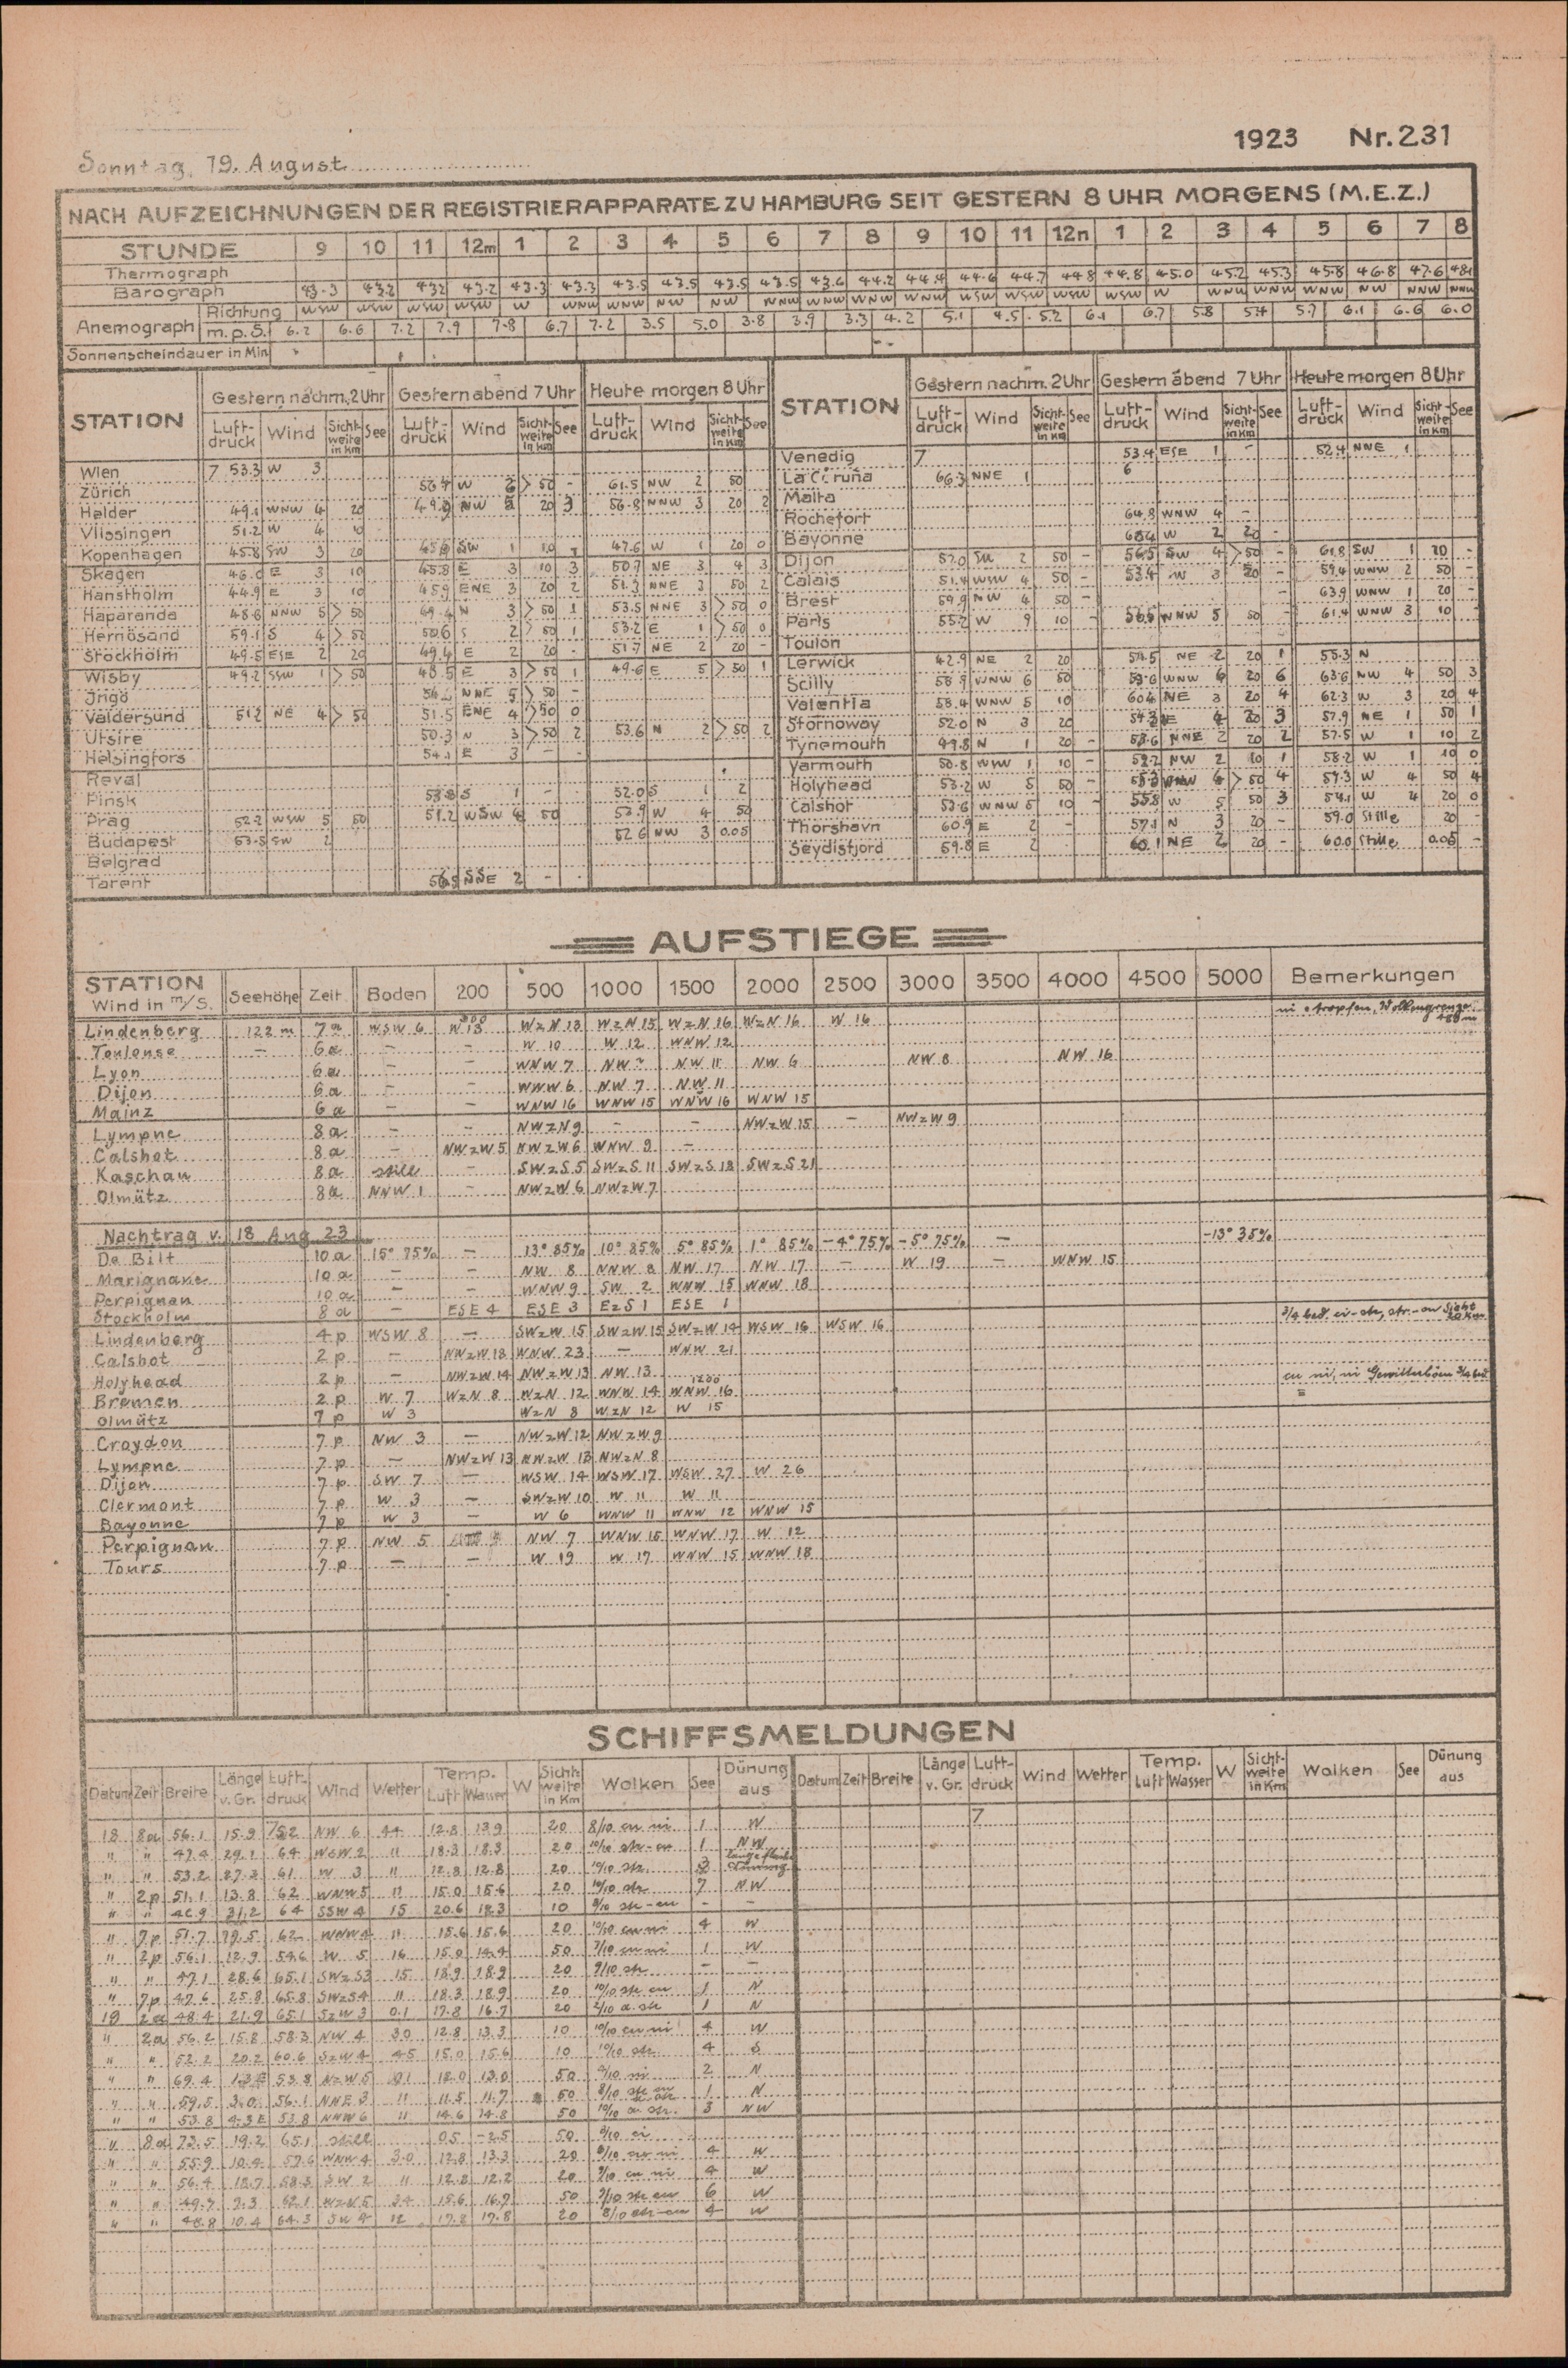 1923 Nr. 231
Sonntag, 19. August
NACH AUFZEICHNUNGEN DER REGISTRIERAPPARATE ZU HAMBURG SEIT GESTERN 8 UHR MORGENS (M.E.Z.)
STUNDE 9 10 11 12m 1 2 3 4 5 6 7 8 9 10 11 12n 1 2 3 4 5 6 7 8
Thermograph
Barograph 43.3 43.2 43.2 43.2 43.3 43.3 43.5 43.5 43.5 43.5 43.6 44.2 44.4 44.6 44.7 44.8 44.8 45.0 45.2 45.3 45.8 46.8 47.6 48.1
Anemograph Richtung WSW WSW WSW WSW W WNW WNW NW NW WNW WNW WNW WNW WSW WSW WSW WSW W WNW WNW WNW NW NNW NNW
m.p.S. 6.2 6.6 7.2 7.9 7.8 6.7 7.2 3.5 5.0 3.8 3.9 3.3 4.2 5.1 4.5 5.2 6.1 6.7 5.8 5.4 5.7 6.1 6.6 6.0
Sonnenscheindauer in Min
STATION Gestern nachm. 2 Uhr Gestern abend 7 Uhr Heute morgen 8 Uhr STATION Gestern nachm. 2 Uhr Gestern abend 7 Uhr Heute morgen 8 Uhr
Luftdruck Wind Sichtweite in Km See Luftdruck Wind Sichtweite in Km See Luftdruck Wind Sichtweite in Km See Luftdruck Wind Sichtweite in Km See Luftdruck Wind Sichtweite in Km See Luftdruck Wind Sichtweite in Km See
Wien 7 53.3 W 3
Zürich W > 50 - 61.5 NW 2 50
Helder 49.1 WNW 4 20 NW 20 3 56.8 NNW 3 20 2
Vlissingen 51.2 W 4
Kopenhagen 45.8 SW 3 20 SW 1 10 47.6 W 1 20 0
Skagen 46.0 E 3 10 45.8 E 3 10 3 50.7 NE 3 4 3
Hanstholm 44.9 E 3 10 45.9 ENE 3 20 2 51.3 NNE 3 50 2
Haparanda 48.6 NNW 5 > 50 N 3 > 50 1 53.5 NNE 3 > 50 0
Hernösand 59.1 S 4 > 50 50.6 S 2 > 50 1 53.2 E 1 > 50 0
Stockholm 49.5 ESE 2 20 49.4 E 2 20 - 51.7 NE 2 20 -
Wisby 49.2 SSW 1 > 50 48.5 E 3 > 50 1 49.6 E 5 > 50 1
Ingö NNE 5 > 50 -
Valdersund 51.2 NE 4 > 50 51.5 ENE 4 > 50 0
Utsire 50.3 N 3 > 50 2 53.6 N 2 > 50 2
Helsingfors 54.1 E 3 - -
Reval
Pinsk S 1 - 52.0 S 1 2
Prag 52.2 WSW 5 50 51.2 WSW 50 53.9 W 4 50
Budapest 53.5 SW 2 52.6 NW 3 0.05
Belgrad
Tarent SSE 2 - -
Venedig 7 53.4 ESE 1 - 52.4 NNE 1
La Coruña 66.3 NNE 1 6
Malta
Rochefort 64.8 WNW 4 -
Bayonne W 2 20 -
Dijon 52.0 SW 2 50 - 56.5 SW 4 > 50 - 61.8 SW 1 20 -
Calais 51.4 WSW 4 50 - 53.4 W 3 20 - 59.4 WNW 2 50 -
Brest 59.9 NW 4 50 - - 63.9 WNW 1 20 -
Paris 55.2 W 9 10 - WNW 5 50 - 61.4 WNW 3 10 -
Toulon
Lerwick 42.9 NE 2 20 54.5 NE 2 20 1 55.3 N
Scilly 58.9 WNW 6 50 WNW 6 20 6 63.6 NW 4 50 3
Valentia 58.4 WNW 5 10 NE 3 20 4 62.3 W 3 20 4
Stornoway 52.0 N 3 20 20 3 57.9 NE 1 50 1
Tynemouth 49.8 N 1 20 - NNE 2 20 2 57.5 W 1 10 2
Yarmouth 50.8 WSW 1 10 - 52.2 NW 2 10 1 58.2 W 1 10 0
Holyhead 53.2 W 5 50 - > 50 4 59.3 W 4 50 4
Calshot 53.6 WNW 5 10 - 55.8 W 5 50 3 W 4 20 0
Thorshavn 60.9 E 2 - 57.1 N 3 20 - 59.0 Stille 20 -
Seydisfjord 59.8 E 2 60.1 NE 2 20 - 60.0 Stille 0.05 -
AUFSTIEGE
STATION Wind in m/S. Seehöhe Zeit Boden 200 500 1000 1500 2000 2500 3000 3500 4000 4500 5000 Bemerkungen
Lindenberg 122 m 7a WSW 6 300 W 13 WzN 13 WzN 15 WzN 16 WzN 16 W 16
Toulouse - 6a - - W 10 W 12 WNW 12
Lyon 6a - - WNW 7 NW NW 11 NW 6 NW 8 NW 16
Dijon 6a - - WNW 6 NW 7 NW 11
Mainz 6a - - WNW 16 WNW 15 WNW 16 WNW 15
Lympne 8a - - NWzN 9 - - NWzW 15 - NWzW 9
Calshot 8a - NWzW 5 NWzW 6 WNW 9 -
Kaschau 8a still - SWzS 5 SWzS 11 SWzS 18 SWzS 21
Olmütz 8a NNW 1 - NWzW 6 NWzW 7
Nachtrag v. 18 Aug 23
De Bilt 10a 15° 75% - 13° 85% 10° 85% 5° 85% 1° 85% -4° 75% -5° 75% - -13° 35%
Marignane 10a - - NW 8 NNW 8 NW 17 NW 17 - W 19 - WNW 15
Perpignan 10a - - WNW 9 SW 2 WNW 15 WNW 18
Stockholm 8a - ESE 4 ESE 3 EzS 1 ESE 1
Lindenberg 4p WSW 8 - SWzW 15 SWzW 15 SWzW 14 WSW 16 WSW 16
Calshot 2p - NWzW 18 WNW 23 - WNW 21
Holyhead 2p - NWzW 14 NWzW 13 NW 13
Bremen 2p W 7 WzN 8 WzN 12 WNW 14 1200 WNW 16
Olmütz 7p W 3 WzN 8 WzN 12 W 15
Croydon 7p NW 3 - NWzW 12 NWzW 9
Lympne 7p - NWzW 13 NWzW 13 NWzN 8
Dijon 7p SW 7 - WSW 14 WSW 17 WSW 27 W 26
Clermont 7p W 3 - SWzW 10 W 11 W 11
Bayonne 7p W 3 - W 6 WNW 11 WNW 12 WNW 15
Perpignan 7p NW 5 NW 7 WNW 15 WNW 17 W 12
Tours 7p - - W 19 W 17 WNW 15 WNW 18
SCHIFFSMELDUNGEN
Datum Zeit Breite Länge v. Gr. Luftdruck Wind Wetter Temp. Luft Wasser W Sichtweite in Km Wolken See Dünung aus Datum Zeit Breite Länge v. Gr. Luftdruck Wind Wetter Temp. Luft Wasser W Sichtweite in Km Wolken See Dünung aus
18 8a 56.1 15.9 752 NW 6 44 12.8 13.9 20 8/10 cu ni 1 W 7
" " 47.4 29.1 64 WSW 2 " 18.3 18.3 20 10/10 str-cu 1 NW
" " 53.2 27.3 61 W 3 " 12.8 12.8 20 10/10 str.
" 2p 51.1 13.8 62 WNW 5 " 15.0 15.6 20 10/10 str 7 NW
" " 31.2 64 SSW 4 15 20.6 18.3 10 9/10 str-cu - -
" 7p 51.7 62 WNW 4 " 15.6 15.6 20 10/10 cu ni 4 W
" 2p 56.1 12.9 54.6 W 5 16 15.0 14.4 50 7/10 cu ni 1 W
" " 47.1 28.6 65.1 SWzS 3 15 18.9 18.9 20 9/10 str - -
" 7p 47.6 25.8 65.8 SWzS 4 " 18.3 18.9 20 10/10 str cu 1 N
19 2a 48.4 21.9 65.1 SzW 3 0.1 17.8 16.7 20 2/10 a. str 1 N
" 2a 56.2 15.8 58.3 NW 4 30 12.8 13.3 10 10/10 cu ni 4 W
" " 52.2 20.2 60.6 SzW 4 45 15.0 15.6 10 10/10 str. 4 S
" " 69.4 53.8 NzW 5 01 12.0 13.0 50 ni 2 N
" " 59.5 3.0 56.1 NNE 3 " 11.5 11.7 50 1 N
" " 53.8 4.3 E 53.8 NNW 6 " 14.6 14.8 50 10/10 a. str. 3 NW
" 8a 73.5 19.2 65.1 still 05 -2.5 50 ci
" " 55.9 10.4 57.6 WNW 4 30 12.8 13.3 20 4 W
" " 56.4 18.7 58.3 SW 2 " 12.8 12.2 20 9/10 cu ni 4 W
" " 49.7 9.3 62.1 WzN 5 34 15.6 16.7 50 9/10 str cu 6 W
" " 48.8 10.4 64.3 SW 4 12 17.8 17.8 20 8/10 str-cu 4 W